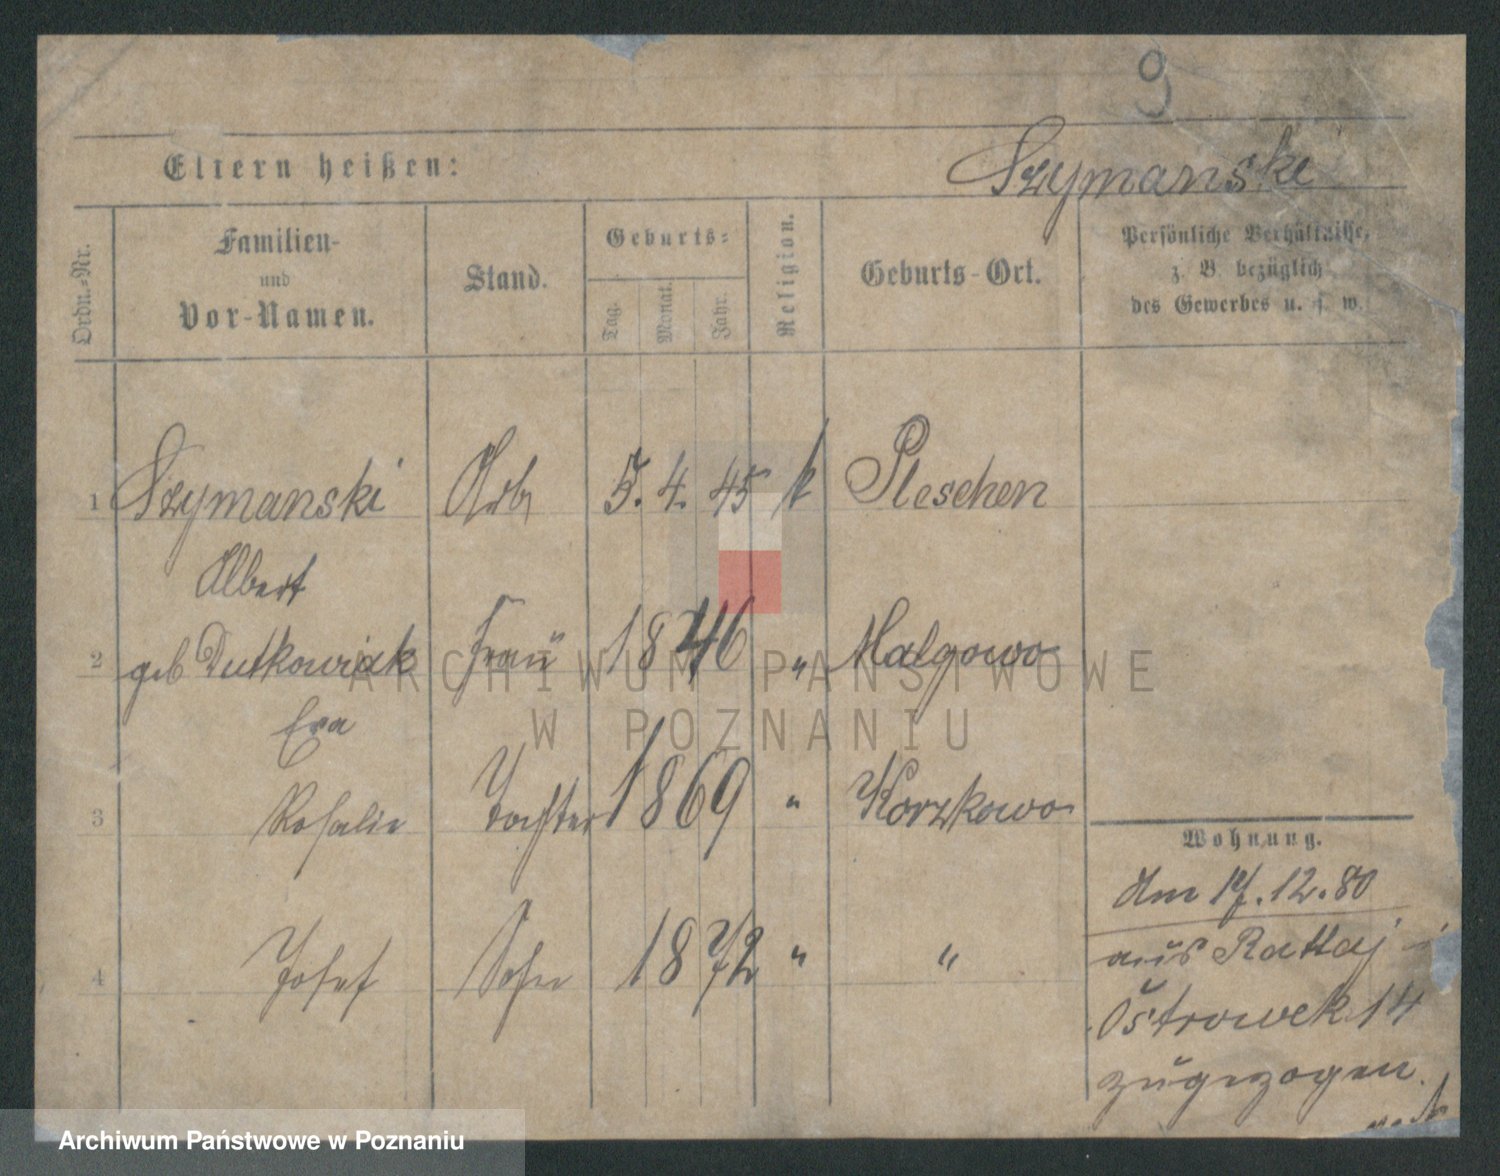 9
Eltern heißen:
Szymanski
Ordn.-Nr.
Familien-
und
Vor-Namen.
Stand.
Geburts-
Tag.
Monat.
Jahr.
Religion.
Geburts-Ort.
Persönliche Verhältnisse,
z. B. bezüglich
des Gewerbes u. s. w.
1 Szymanski Arb 5. 4. 45 k Pleschen
Albert
2 geb Dutkowiak Frau 1846 " Malgowo
Eva
3 Rosalie Tochter 1869 " Korzkowo
4 Josef Sohn 1872 " "
Wohnung.
Am 17.12.80
aus Rattaj
Ostrowek 14
zugezogen.
ARCHIWUM PAŃSTWOWE
W POZNANIU
Archiwum Państwowe w Poznaniu